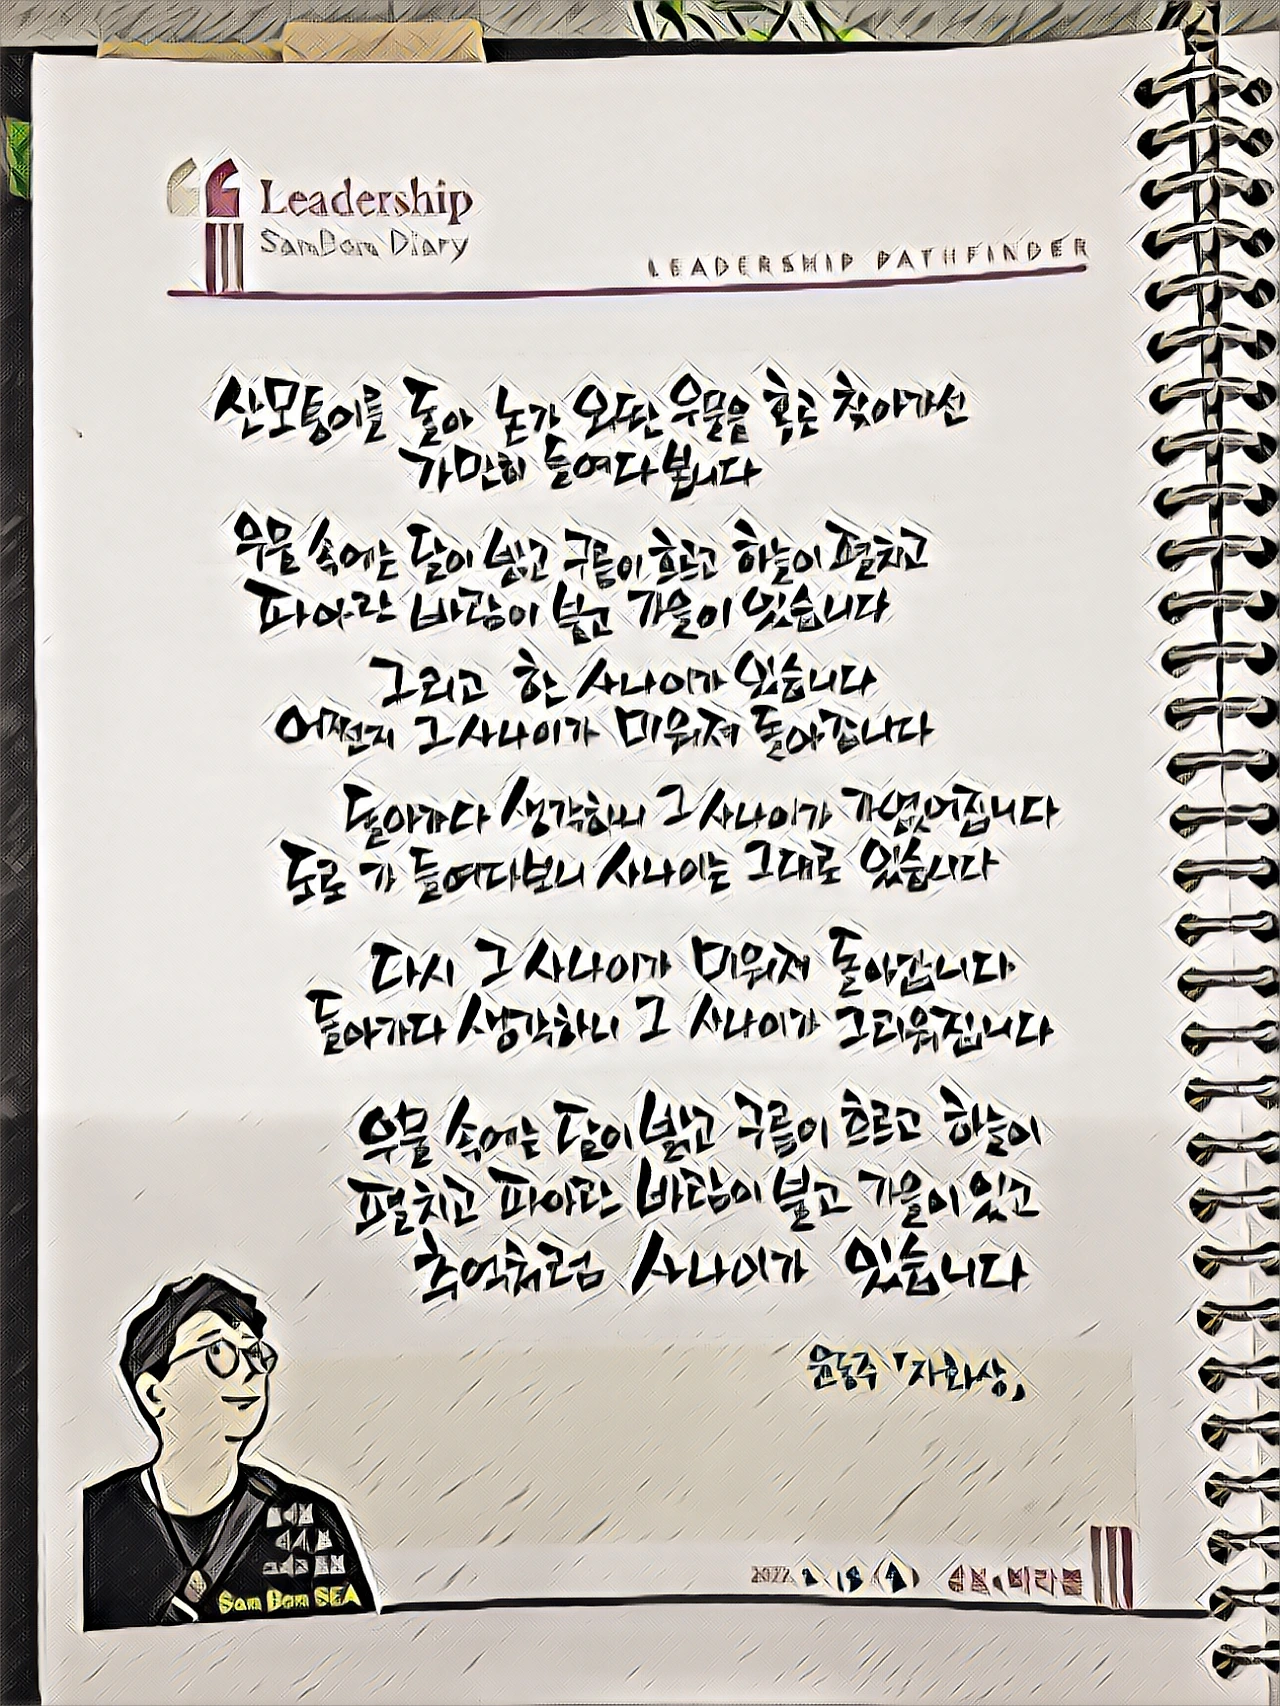 Leadership
SamBom Diary
LEADERSHIP PATHFINDER
산모퉁이를 돌아 논가 외딴 우물을 홀로 찾아가선
가만히 들여다봅니다
우물 속에는 달이 밝고 구름이 흐르고 하늘이 펼치고
파아란 바람이 불고 가을이 있습니다
그리고 한 사나이가 있습니다
어쩐지 그 사나이가 미워져 돌아갑니다
돌아가다 생각하니 그 사나이가 가엾어집니다
도로 가 들여다보니 사나이는 그대로 있습니다
다시 그 사나이가 미워져 돌아갑니다
돌아가다 생각하니 그 사나이가 그리워집니다
우물 속에는 달이 밝고 구름이 흐르고 하늘이
펼치고 파아란 바람이 불고 가을이 있고
추억처럼 사나이가 있습니다
윤동주 「자화상」
Sam Bam SEA
2022.